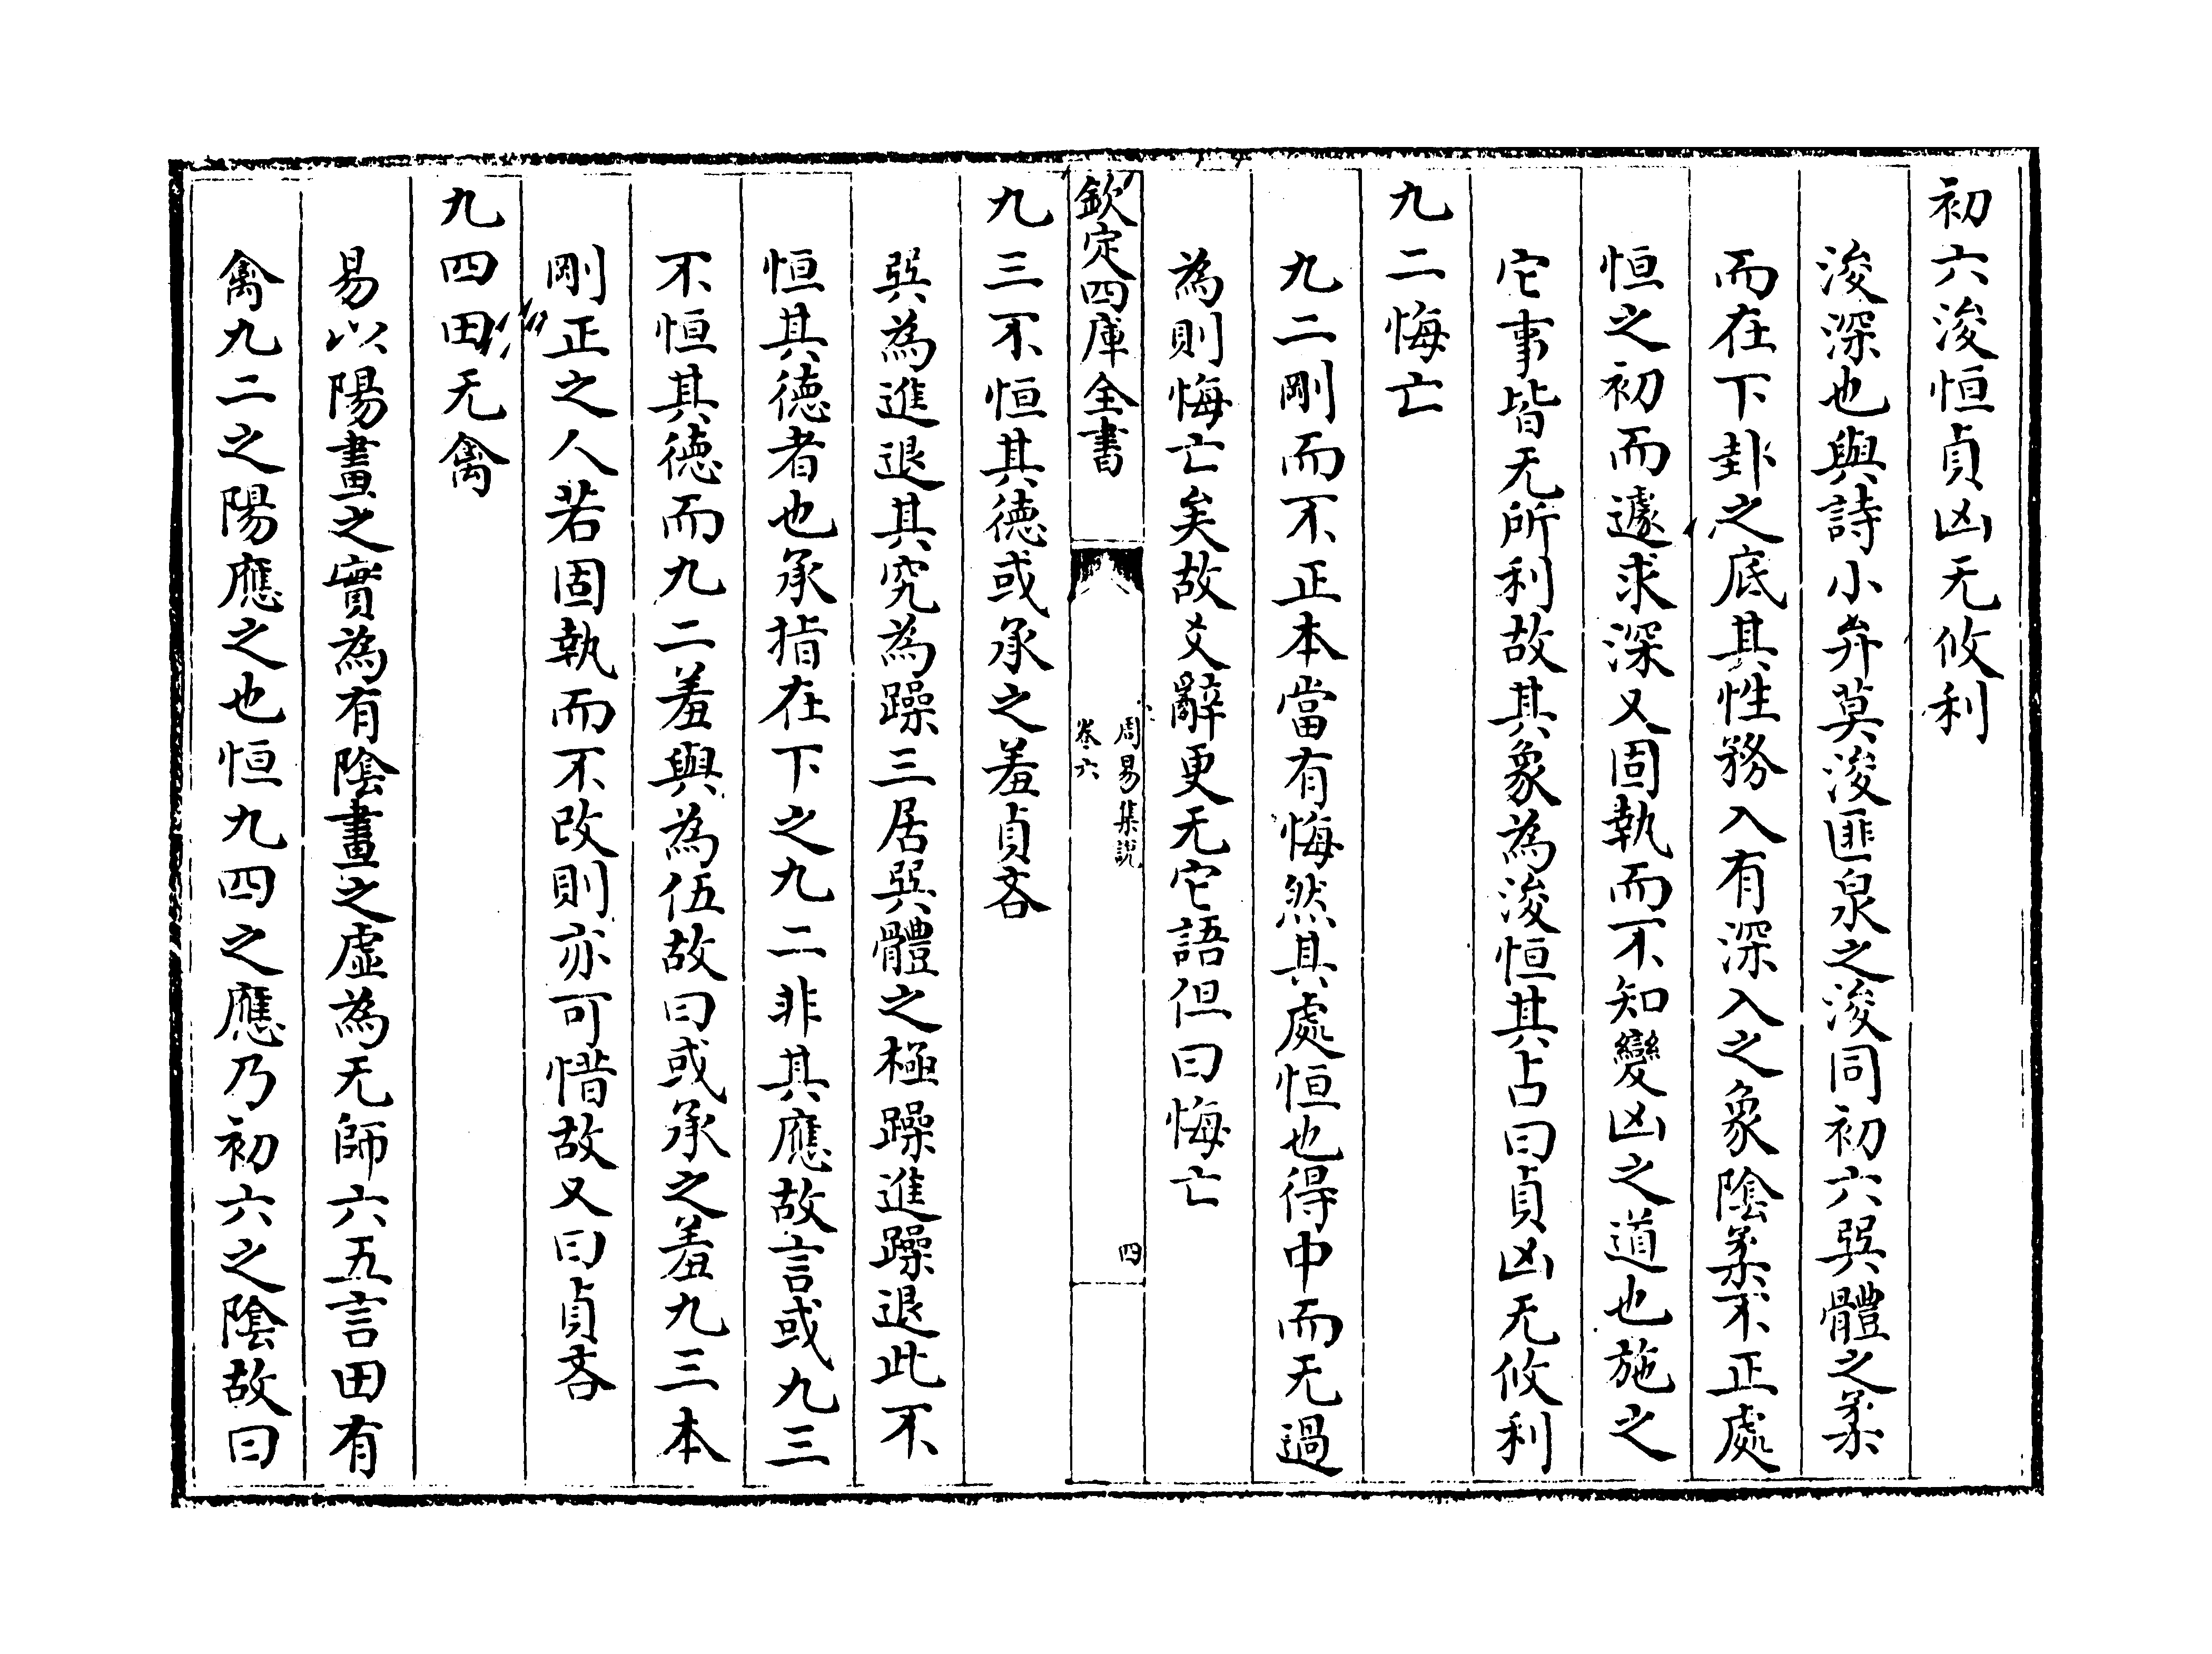 初六浚恒貞凶无攸利
浚深也與詩小弁莫浚匪泉之浚同初六巽體之柔
而在下卦之底其性務入有深入之象陰柔不正處
恒之初而遽求深又固執而不知變凶之道也施之
它事皆无所利故其象為浚恒其占曰貞凶无攸利
九二悔亡
九二剛而不正本當有悔然其處恒也得中而无過
為則悔亡矣故爻辭更无它語但曰悔亡
欽定四庫全書
周易集說
卷六
四
九三不恒其德或承之羞貞吝
巽為進退其究為躁三居巽體之極躁進躁退此不
恒其德者也承指在下之九二非其應故言或九三
不恒其德而九二羞與為伍故曰或承之羞九三本
剛正之人若固執而不改則亦可惜故又曰貞吝
九四田无禽
易以陽畫之實為有陰畫之虛為无師六五言田有
禽九二之陽應之也恒九四之應乃初六之陰故曰